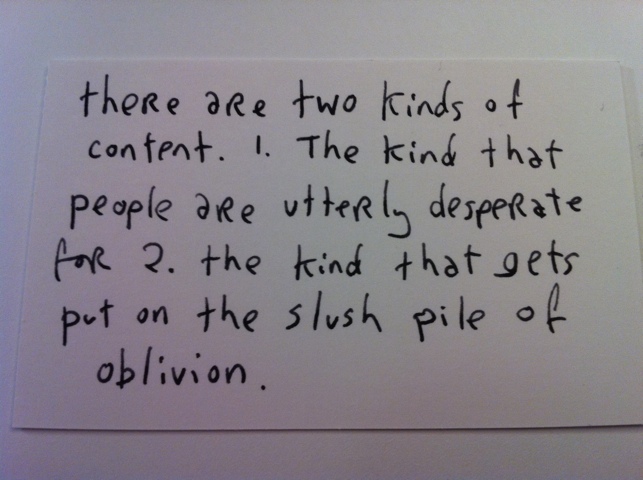 there are two kinds of
content. 1. The kind that
people are utterly desperate
for 2. the kind that gets
put on the slush pile of
oblivion.